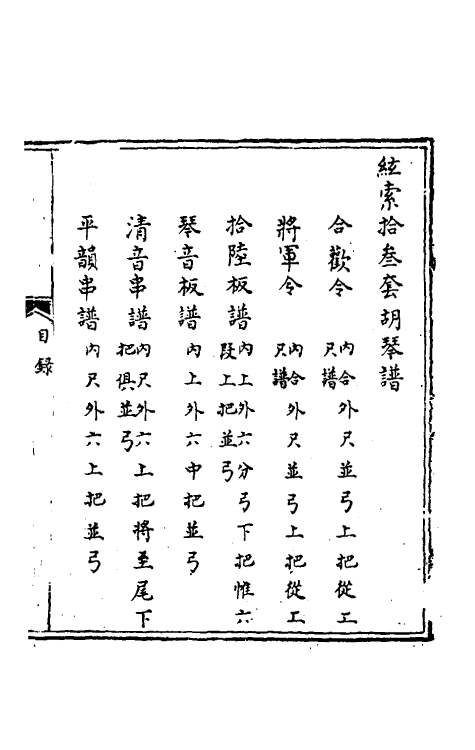 絃索拾叁套胡琴譜
合歡令 內合外尺並弓上把從工
尺譜
將軍令 內合外尺並弓上把從工
尺譜
拾陸板譜 內上外六分弓下把惟六
段上把並弓
琴音板譜 內上外六中把並弓
清音串譜 內尺外六上把將至尾下
把俱並弓
平韻串譜 內尺外六上把並弓
目錄